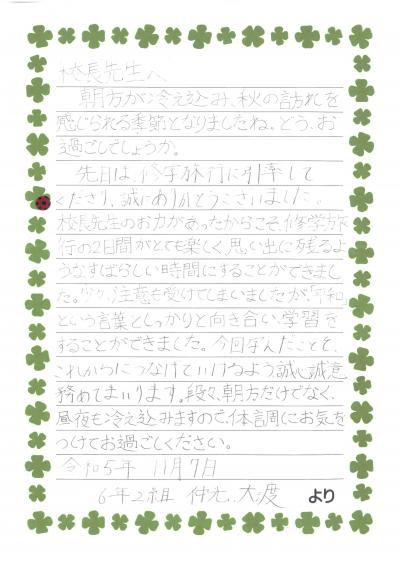 校長先生へ
朝方が冷え込み、秋の訪れを
感じられる季節となりましたね。どう、お
過ごしでしょうか。
先日は、修学旅行に引率して
くださり、誠にありがとうございました。
校長先生のお力があったからこそ、修学旅
行の2日間がとても楽しく、思い出に残るよ
うなすばらしい時間にすることができまし
た。少々、注意も受けてしまいましたが、平和
という言葉としっかりと向き合い、学習を
することができました。今回学んだことを、
これからにつなげていけるよう誠心誠意
務めてまいります。段々、朝方だけでなく、
昼夜も冷え込みますので、体調にお気を
つけてお過ごしください。
令和5年 11月7日
6年2組 大渡 より